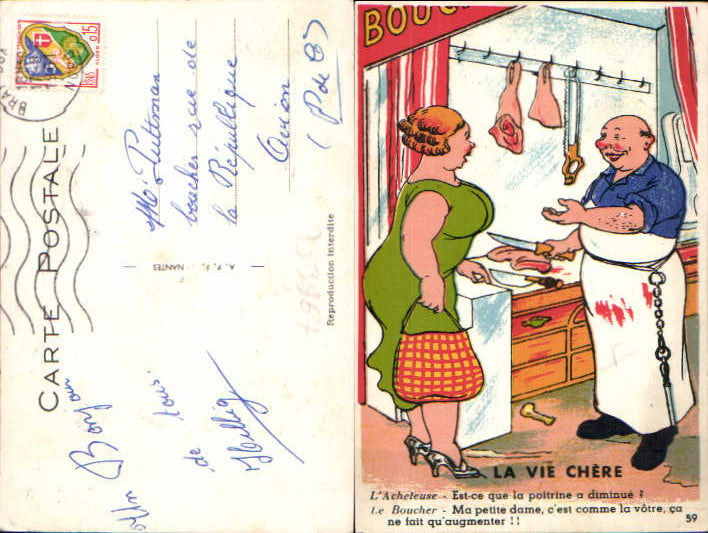 CARTE POSTALE
BOUC
LA VIE CHÈRE
L'Acheteuse - Est-ce que la poitrine a diminué ?
Le Boucher - Ma petite dame, c'est comme la vôtre, ça
ne fait qu'augmenter !!
59
0,15
A. P. - NANTES
Reproduction interdite
boucher rue de
la République
(P de C)
Bonjour
de tous